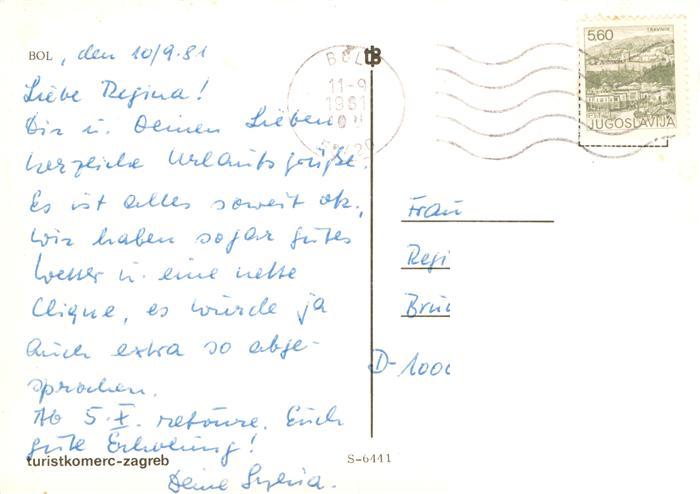 BOL, den 10/9.81
Liebe Regina!
Dir u. Deinen Lieben
herzliche Urlaubsgrüße.
Es ist alles soweit ok,
wir haben sogar gutes
Wetter u. eine nette
Clique, es wurde ja
auch extra so abge-
sprochen.
Ab 5.X. retour. Euch
gute Erholung!
Deine
turistkomerc-zagreb
S-6441
tB
BOL
11-9
1981
5.60
TRAVNIK
JUGOSLAVIJA
Frau
Regi
Brun
D-1000